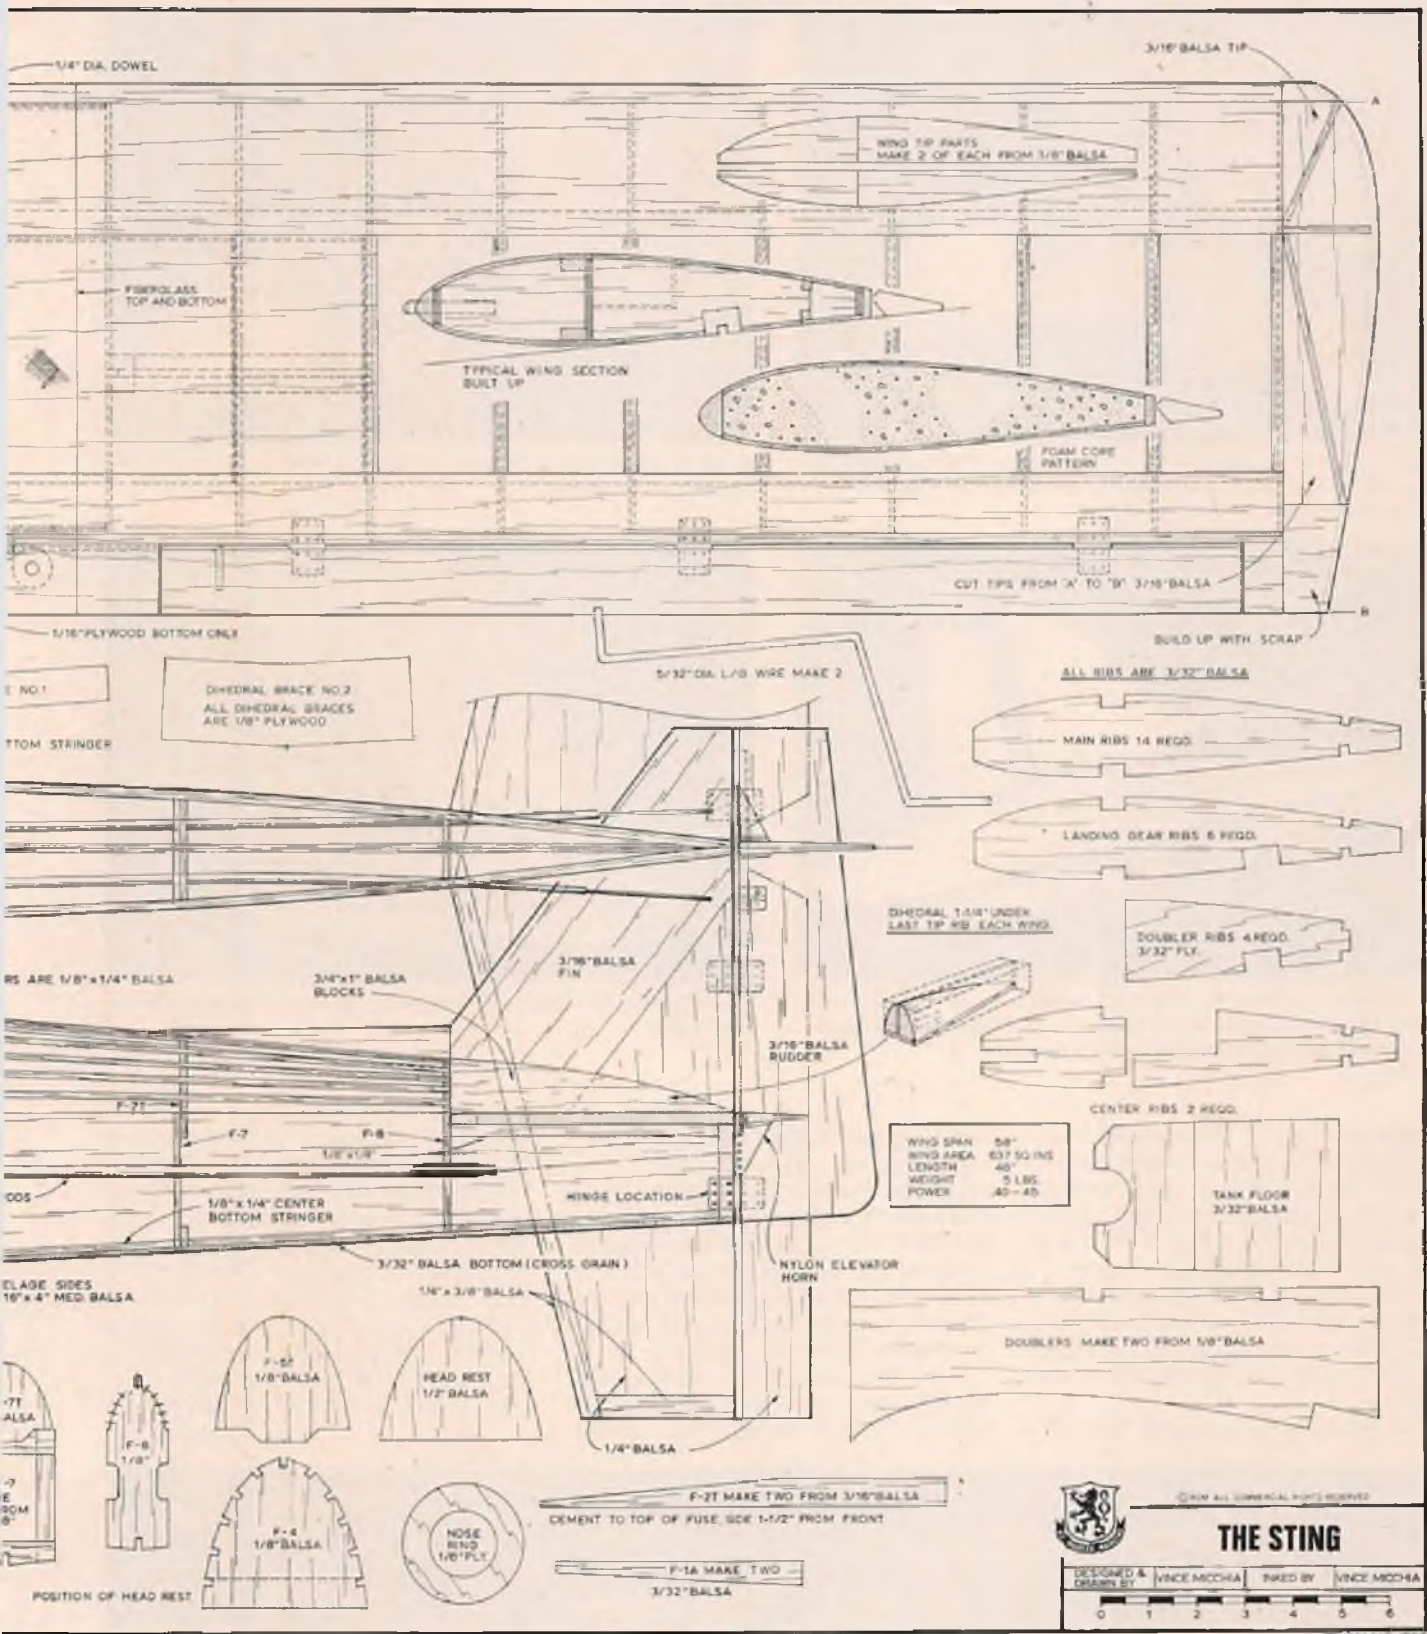 1/4" DIA. DOWEL
3/16" BALSA TIP
A
WING TIP PARTS
MAKE 2 OF EACH FROM 1/8" BALSA
FIBERGLASS
TOP AND BOTTOM
TYPICAL WING SECTION
BUILT UP
FOAM CORE
PATTERN
CUT TIPS FROM "A" TO "B" 3/16" BALSA
B
1/16" PLYWOOD BOTTOM ONLY
BUILD UP WITH SCRAP
5/32" DIA. L/G WIRE MAKE 2
ALL RIBS ARE 3/32" BALSA
E NO.1
DIHEDRAL BRACE NO.2
ALL DIHEDRAL BRACES
ARE 1/8" PLYWOOD
TTOM STRINGER
MAIN RIBS 14 REQD.
LANDING GEAR RIBS 6 REQD.
DIHEDRAL 1-1/4" UNDER
LAST TIP RIB EACH WING
DOUBLER RIBS 4 REQD.
3/32" PLY.
3/16" BALSA
FIN
RS ARE 1/8" x 1/4" BALSA
3/4" x 1" BALSA
BLOCKS
3/16" BALSA
RUDDER
F-2T
F-7
F-8
1/8" x 1/8"
CENTER RIBS 2 REQD.
WING SPAN 58"
WING AREA 637 SQ INS
LENGTH 48"
WEIGHT 5 LBS.
POWER .40 - .45
ODS
1/8" x 1/4" CENTER
BOTTOM STRINGER
HINGE LOCATION
TANK FLOOR
3/32" BALSA
3/32" BALSA BOTTOM (CROSS GRAIN)
NYLON ELEVATOR
HORN
ELAGE SIDES
16" x 4" MED. BALSA
1/4" x 3/8" BALSA
DOUBLERS MAKE TWO FROM 1/8" BALSA
F-5T
1/8" BALSA
HEAD REST
1/2" BALSA
-7T
ALSA
F-8
1/8"
1/4" BALSA
-7
E
ROM
F-4
1/8" BALSA
NOSE
RING
1/8" PLY
F-2T MAKE TWO FROM 3/16" BALSA
CEMENT TO TOP OF FUSE. SIDE 1-1/2" FROM FRONT
F-1A MAKE TWO
3/32" BALSA
POSITION OF HEAD REST
ALL COMMERCIAL RIGHTS RESERVED
THE STING
DESIGNED &
DRAWN BY VINCE MICCHIA INKED BY VINCE MICCHIA
0 1 2 3 4 5 6